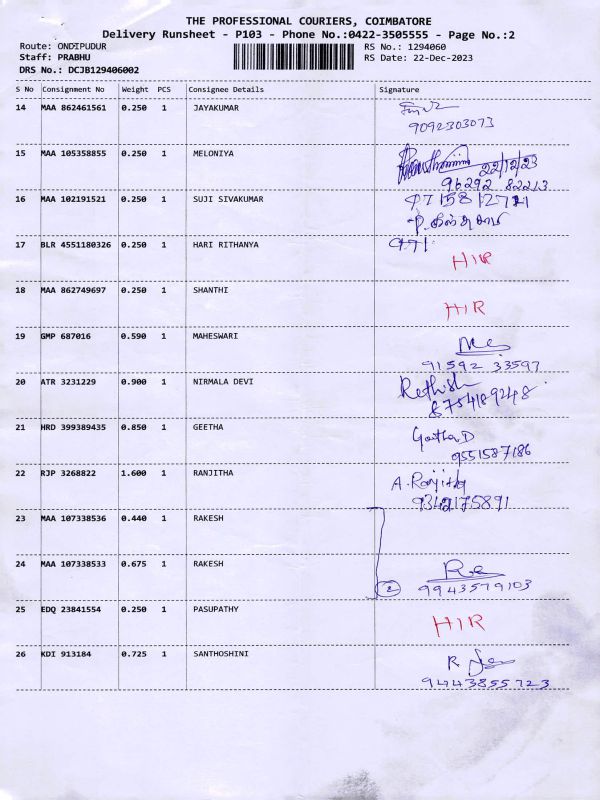 THE PROFESSIONAL COURIERS, COIMBATORE
Delivery Runsheet - P103 - Phone No.:0422-3505555 - Page No.:2
Route: ONDIPUDUR RS No.: 1294060
Staff: PRABHU RS Date: 22-Dec-2023
DRS No.: DCJB129406002
S No Consignment No Weight PCS Consignee Details Signature
14 MAA 862461561 0.250 1 JAYAKUMAR
9092303073
15 MAA 105358855 0.250 1 MELONIYA
22/12/23
96292 82213
16 MAA 102191521 0.250 1 SUJI SIVAKUMAR
17 BLR 4551180326 0.250 1 HARI RITHANYA
HIR
18 MAA 862749697 0.250 1 SHANTHI
HIR
19 GMP 687016 0.590 1 MAHESWARI
91592 33597
20 ATR 3231229 0.900 1 NIRMALA DEVI Rethish
8754189248
21 HRD 399389435 0.850 1 GEETHA Geetha D
9551587186
22 RJP 3268822 1.600 1 RANJITHA A. Ranjitha
9342175891
23 MAA 107338536 0.440 1 RAKESH
24 MAA 107338533 0.675 1 RAKESH
2 9943579103
25 EDQ 23841554 0.250 1 PASUPATHY HIR
26 KDI 913184 0.725 1 SANTHOSHINI
9443855723